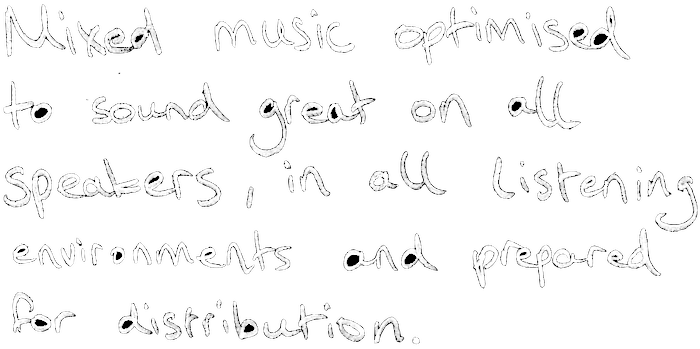 Mixed music optimised
to sound great on all
speakers, in all listening
environments and prepared
for distribution.